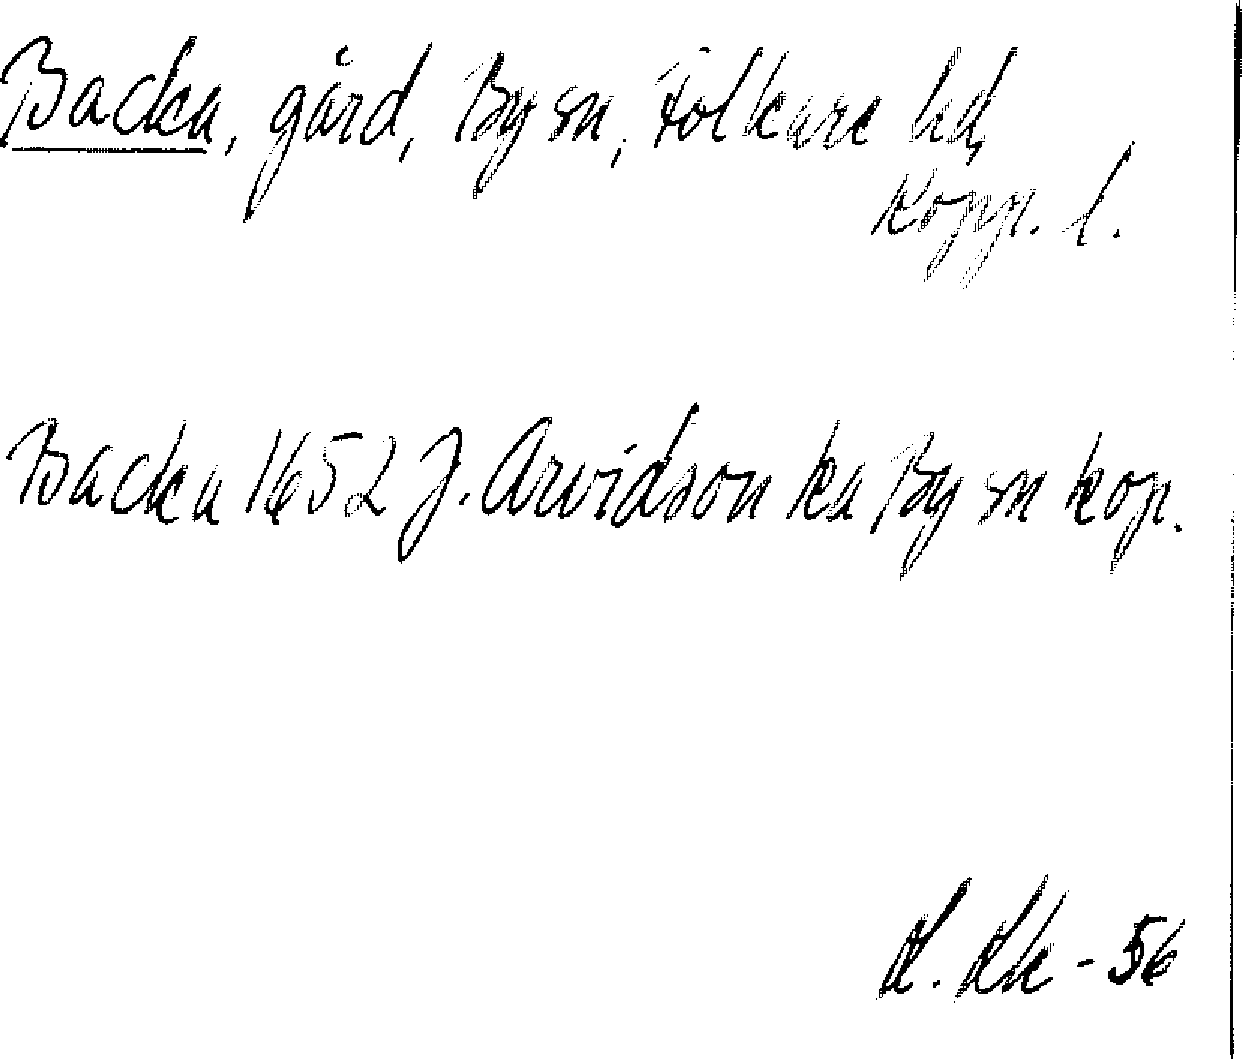 Backa, gård, By sn, Folkare hd,
Kopp. l.
Backa 1652 J. Arvidson ka By sn kop.